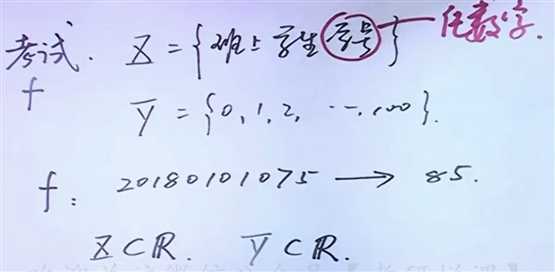 考试. X = {班上学生学号} 任数字.
f Y = {0, 1, 2, ..., 100}.
f: 20180101075 → 85.
X ⊂ ℝ. Y ⊂ ℝ.